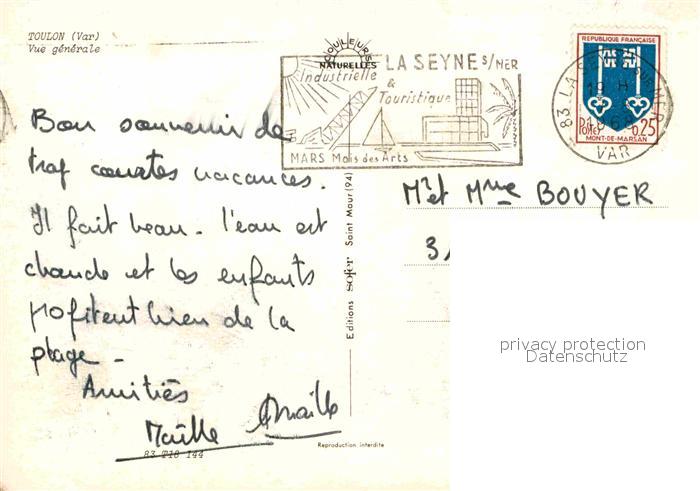 TOULON (Var)
Vue générale
COULEURS
NATURELLES
LA SEYNE S/MER
Industrielle
&
Touristique
MARS Mois des Arts
REPUBLIQUE FRANÇAISE
POSTES
0,25
MONT-DE-MARSAN
83 LA SEYNE SUR MER
19 H
VAR
Bon souvenir de
trop courtes vacances.
Il fait beau - l'eau est
chaude et les enfants
profitent bien de la
plage -
Amitiés
Maille
83 T18 144
Editions sofer Saint Maur (94)
Reproduction interdite
Mr et Mme BOUYER
3
privacy protection
Datenschutz